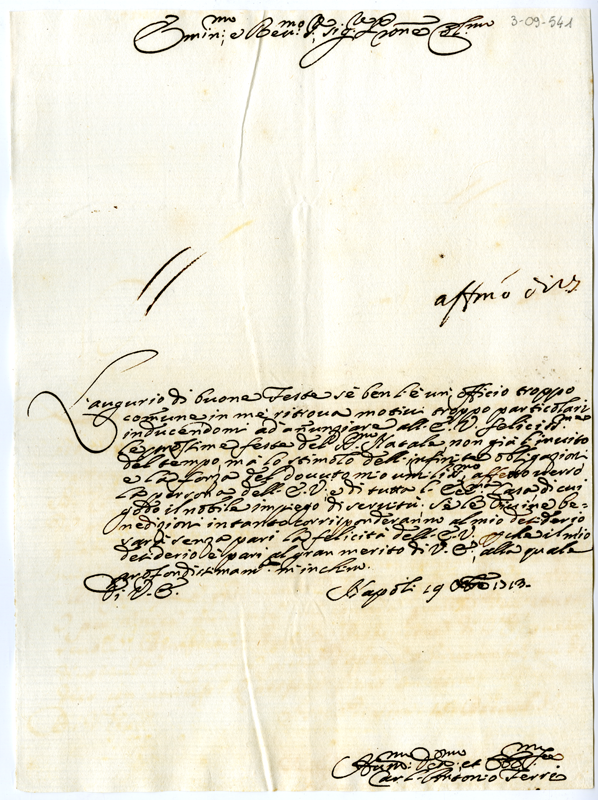 3-09-541
Emin:mo e Rev:mo Sig:re Sig:r e Prone Col:mo
affmo
L'augurio di buone Feste se ben è un officio troppo
comune in me ritrova motivi troppo particolari
inducendomi ad añunziare all'E.V. felici
le prossime feste del S:mo Natale non già l'invito
del tempo, ma lo stimolo dell'infinite obligazioni
e la forza del dovuto mio umiliss:mo affetto verso
la persona dell'E.V. e di tutta l' Ecc:ma Casa di cui
godo il nobile impiego di servitù. Se le Divine be=
nedizioni intanto corrisponderanno al mio desiderio
sarà senza pari la felicità dell'E.V. che il mio
desiderio è pari al gran merito di V.E., alla quale
profondissimam:te m'inchino.
Di V.E. Napoli 19 1713.
Hum:mo Dev:mo et Obl:mo
Carl'Antonio Ferri